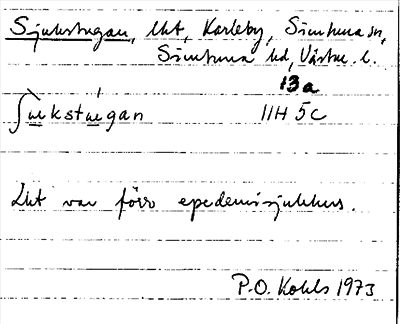 Sjukstugan, lht, Karleby, Simtuna sn,
Simtuna hd, Västm. l.
13a
ʃùkstùgan 11H 5c
Lht var förr epedemisjukhus.
P.O. Kohls 1973